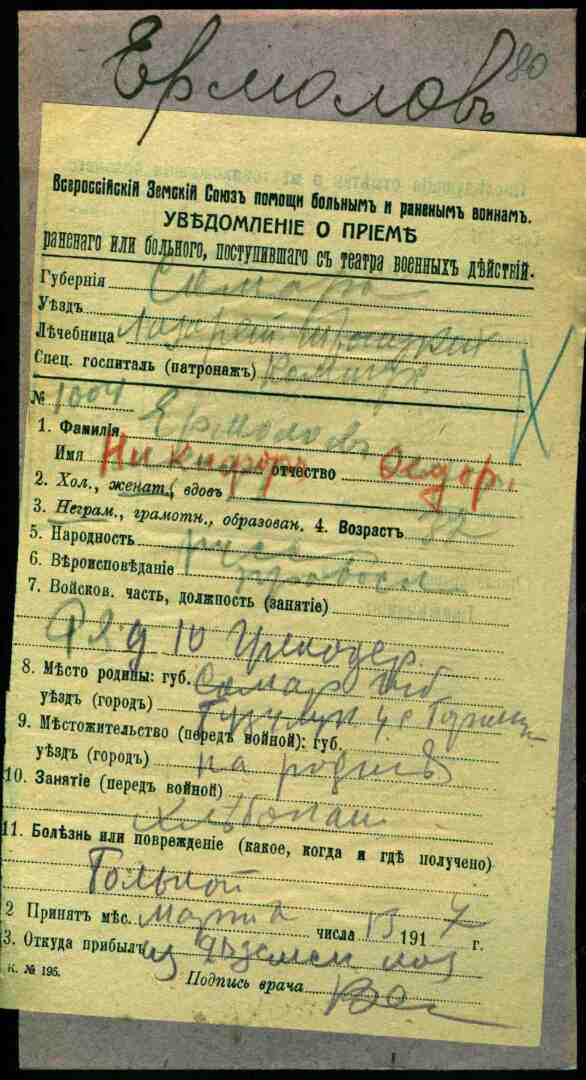 Ермоловъ
80
Всероссійскій Земскій Союзъ помощи больнымъ и раненымъ воинамъ.
УВѢДОМЛЕНІЕ О ПРІЕМѢ
раненаго или больного, поступившаго съ театра военныхъ дѣйствій.
Губернія Самара
Уѣздъ
Лѣчебница Лазарет
Спец. госпиталь (патронажъ)
№ 1004
1. Фамилія Ермоловъ
Имя Никифоръ отчество Федор.
2. Хол., женат., вдовъ
3. Неграм., грамотн., образован. 4. Возрастъ 32
5. Народность русс
6. Вѣроисповѣданіе правосл
7. Войсков. часть, должность (занятіе)
Ряд 10 Гренадер.
8. Мѣсто родины: губ. Самар губ
уѣздъ (городъ)
9. Мѣстожительство (передъ войной): губ.
уѣздъ (городъ) на родинѣ
10. Занятіе (передъ войной)
Хлѣбопаш
11. Болѣзнь или поврежденіе (какое, когда и гдѣ получено)
Больной
2 Принятъ мѣс. марта числа 13 1917 г.
3. Откуда прибылъ из
Подпись врача
К. № 195.